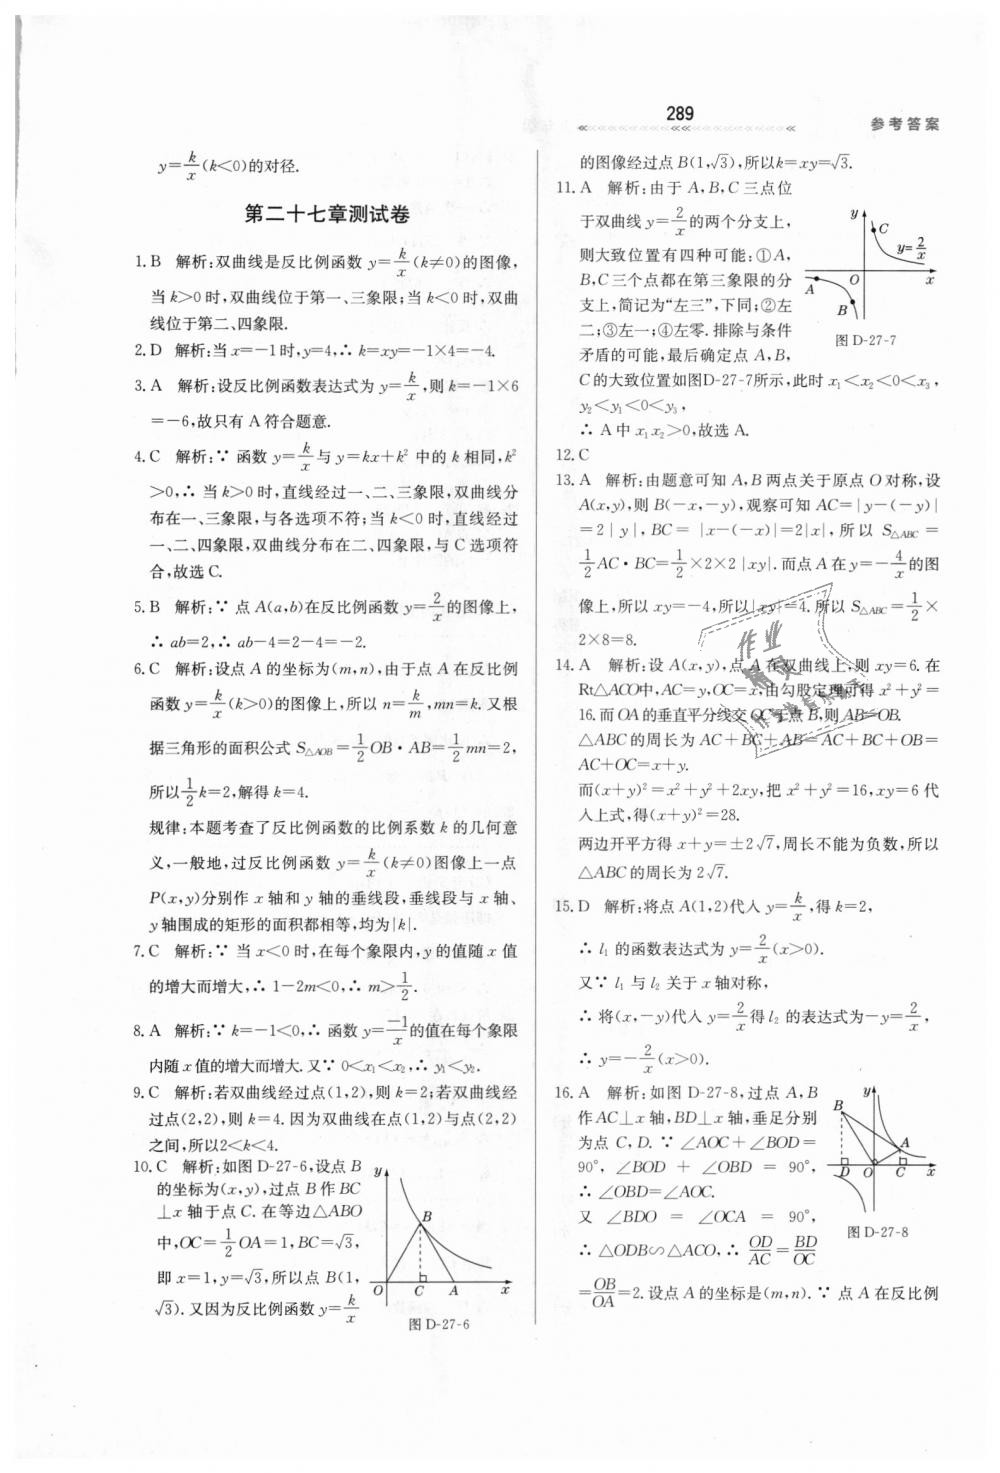 289
参考答案
y=k/x(k<0)的对径.
第二十七章测试卷
1. B 解析:双曲线是反比例函数 y=k/x(k≠0)的图像,
当 k>0 时,双曲线位于第一、三象限;当 k<0 时,双曲
线位于第二、四象限.
2. D 解析:当 x=-1 时,y=4,∴ k=xy=-1×4=-4.
3. A 解析:设反比例函数表达式为 y=k/x,则 k=-1×6
=-6,故只有 A 符合题意.
4. C 解析:∵ 函数 y=k/x 与 y=kx+k² 中的 k 相同,k²
>0,∴ 当 k>0 时,直线经过一、二、三象限,双曲线分
布在一、三象限,与各选项不符;当 k<0 时,直线经过
一、二、四象限,双曲线分布在二、四象限,与 C 选项符
合,故选 C.
5. B 解析:∵ 点 A(a,b)在反比例函数 y=2/x 的图像上,
∴ ab=2,∴ ab-4=2-4=-2.
6. C 解析:设点 A 的坐标为(m,n),由于点 A 在反比例
函数 y=k/x(k>0)的图像上,所以 n=k/m,mn=k.又根
据三角形的面积公式 S△AOB=1/2 OB·AB=1/2 mn=2,
所以 1/2 k=2,解得 k=4.
规律:本题考查了反比例函数的比例系数 k 的几何意
义,一般地,过反比例函数 y=k/x(k≠0)图像上一点
P(x,y)分别作 x 轴和 y 轴的垂线段,垂线段与 x 轴、
y 轴围成的矩形的面积都相等,均为|k|.
7. C 解析:∵ 当 x<0 时,在每个象限内,y 的值随 x 值
的增大而增大,∴ 1-2m<0,∴ m>1/2.
8. A 解析:∵ k=-1<0,∴ 函数 y=-1/x 的值在每个象限
内随 x 值的增大而增大.又∵ 0<x₁<x₂,∴ y₁<y₂.
9. C 解析:若双曲线经过点(1,2),则 k=2;若双曲线经
过点(2,2),则 k=4.因为双曲线在点(1,2)与点(2,2)
之间,所以 2<k<4.
10. C 解析:如图 D-27-6,设点 B
的坐标为(x,y),过点 B 作 BC
⊥x 轴于点 C.在等边△ABO
中,OC=1/2 OA=1,BC=√3,
即 x=1,y=√3,所以点 B(1,
√3).又因为反比例函数 y=k/x
y
B
O C A x
图 D-27-6
的图像经过点 B(1,√3),所以 k=xy=√3.
11. A 解析:由于 A,B,C 三点位
于双曲线 y=2/x 的两个分支上,
则大致位置有四种可能:①A,
B,C 三个点都在第三象限的分
支上,简记为“左三”,下同;②左
二;③左一;④左零.排除与条件
矛盾的可能,最后确定点 A,B,
y
C
y=2/x
A O x
B
图 D-27-7
C 的大致位置如图D-27-7所示,此时 x₁<x₂<0<x₃,
y₂<y₁<0<y₃,
∴ A 中 x₁x₂>0,故选 A.
12. C
13. A 解析:由题意可知 A,B 两点关于原点 O 对称,设
A(x,y),则 B(-x,-y),观察可知 AC=|y-(-y)|
=2|y|,BC=|x-(-x)|=2|x|,所以 S△ABC=
1/2 AC·BC=1/2×2×2|xy|.而点 A 在 y=-4/x 的图
像上,所以 xy=-4,所以|xy|=4.所以 S△ABC=1/2×
2×8=8.
14. A 解析:设 A(x,y),点 A 在双曲线上,则 xy=6.在
Rt△ACO中,AC=y,OC=x,由勾股定理可得 x²+y²=
16.而 OA 的垂直平分线交 OC 于点 B,则 AB=OB.
△ABC 的周长为 AC+BC+AB=AC+BC+OB=
AC+OC=x+y.
而(x+y)²=x²+y²+2xy,把 x²+y²=16,xy=6 代
入上式,得(x+y)²=28.
两边开平方得 x+y=±2√7,周长不能为负数,所以
△ABC 的周长为 2√7.
15. D 解析:将点 A(1,2)代入 y=k/x,得 k=2,
∴ l₁ 的函数表达式为 y=2/x(x>0).
又∵ l₁ 与 l₂ 关于 x 轴对称,
∴ 将(x,-y)代入 y=2/x 得 l₂ 的表达式为-y=2/x,
∴ y=-2/x(x>0).
16. A 解析:如图 D-27-8,过点 A,B
作 AC⊥x 轴,BD⊥x 轴,垂足分别
为点 C,D.∵ ∠AOC+∠BOD=
90°,∠BOD+∠OBD=90°,
∴ ∠OBD=∠AOC.
又 ∠BDO=∠OCA=90°,
∴ △ODB∽△ACO,∴ OD/AC=BD/OC
y
B
A
D O C x
图 D-27-8
=OB/OA=2.设点 A 的坐标是(m,n).∵ 点 A 在反比例
作业
精灵